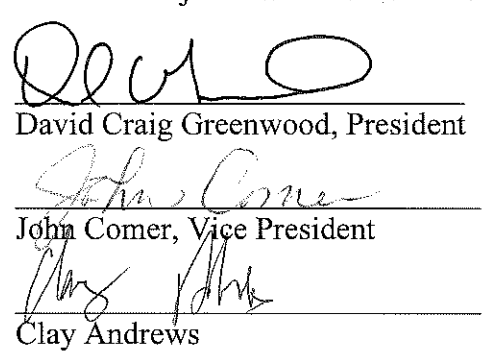 David Craig Greenwood, President
John Comer
John Comer, Vice President
Clay
Clay Andrews